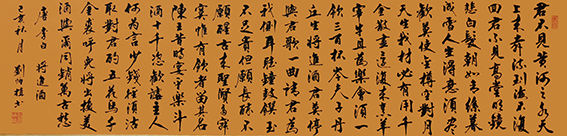 君不見黃河之水天
上來奔流到海不復
回君不見高堂明鏡
悲白髮朝如青絲暮
成雪人生得意須盡
歡莫使金樽空對月
天生我材必有用千
金散盡還復來烹羊
宰牛且為樂會須一
飲三百杯岑夫子丹
丘生將進酒君莫停
與君歌一曲請君為
我側耳聽鐘鼓饌玉
不足貴但願長醉不
願醒古來聖賢皆寂
寞惟有飲者留其名
陳王昔時宴平樂斗
酒十千恣歡謔主人
何為言少錢徑須沽
取對君酌五花馬千
金裘呼兒將出換美
酒與爾同銷萬古愁
唐李白 將進酒
己亥秋月 劉